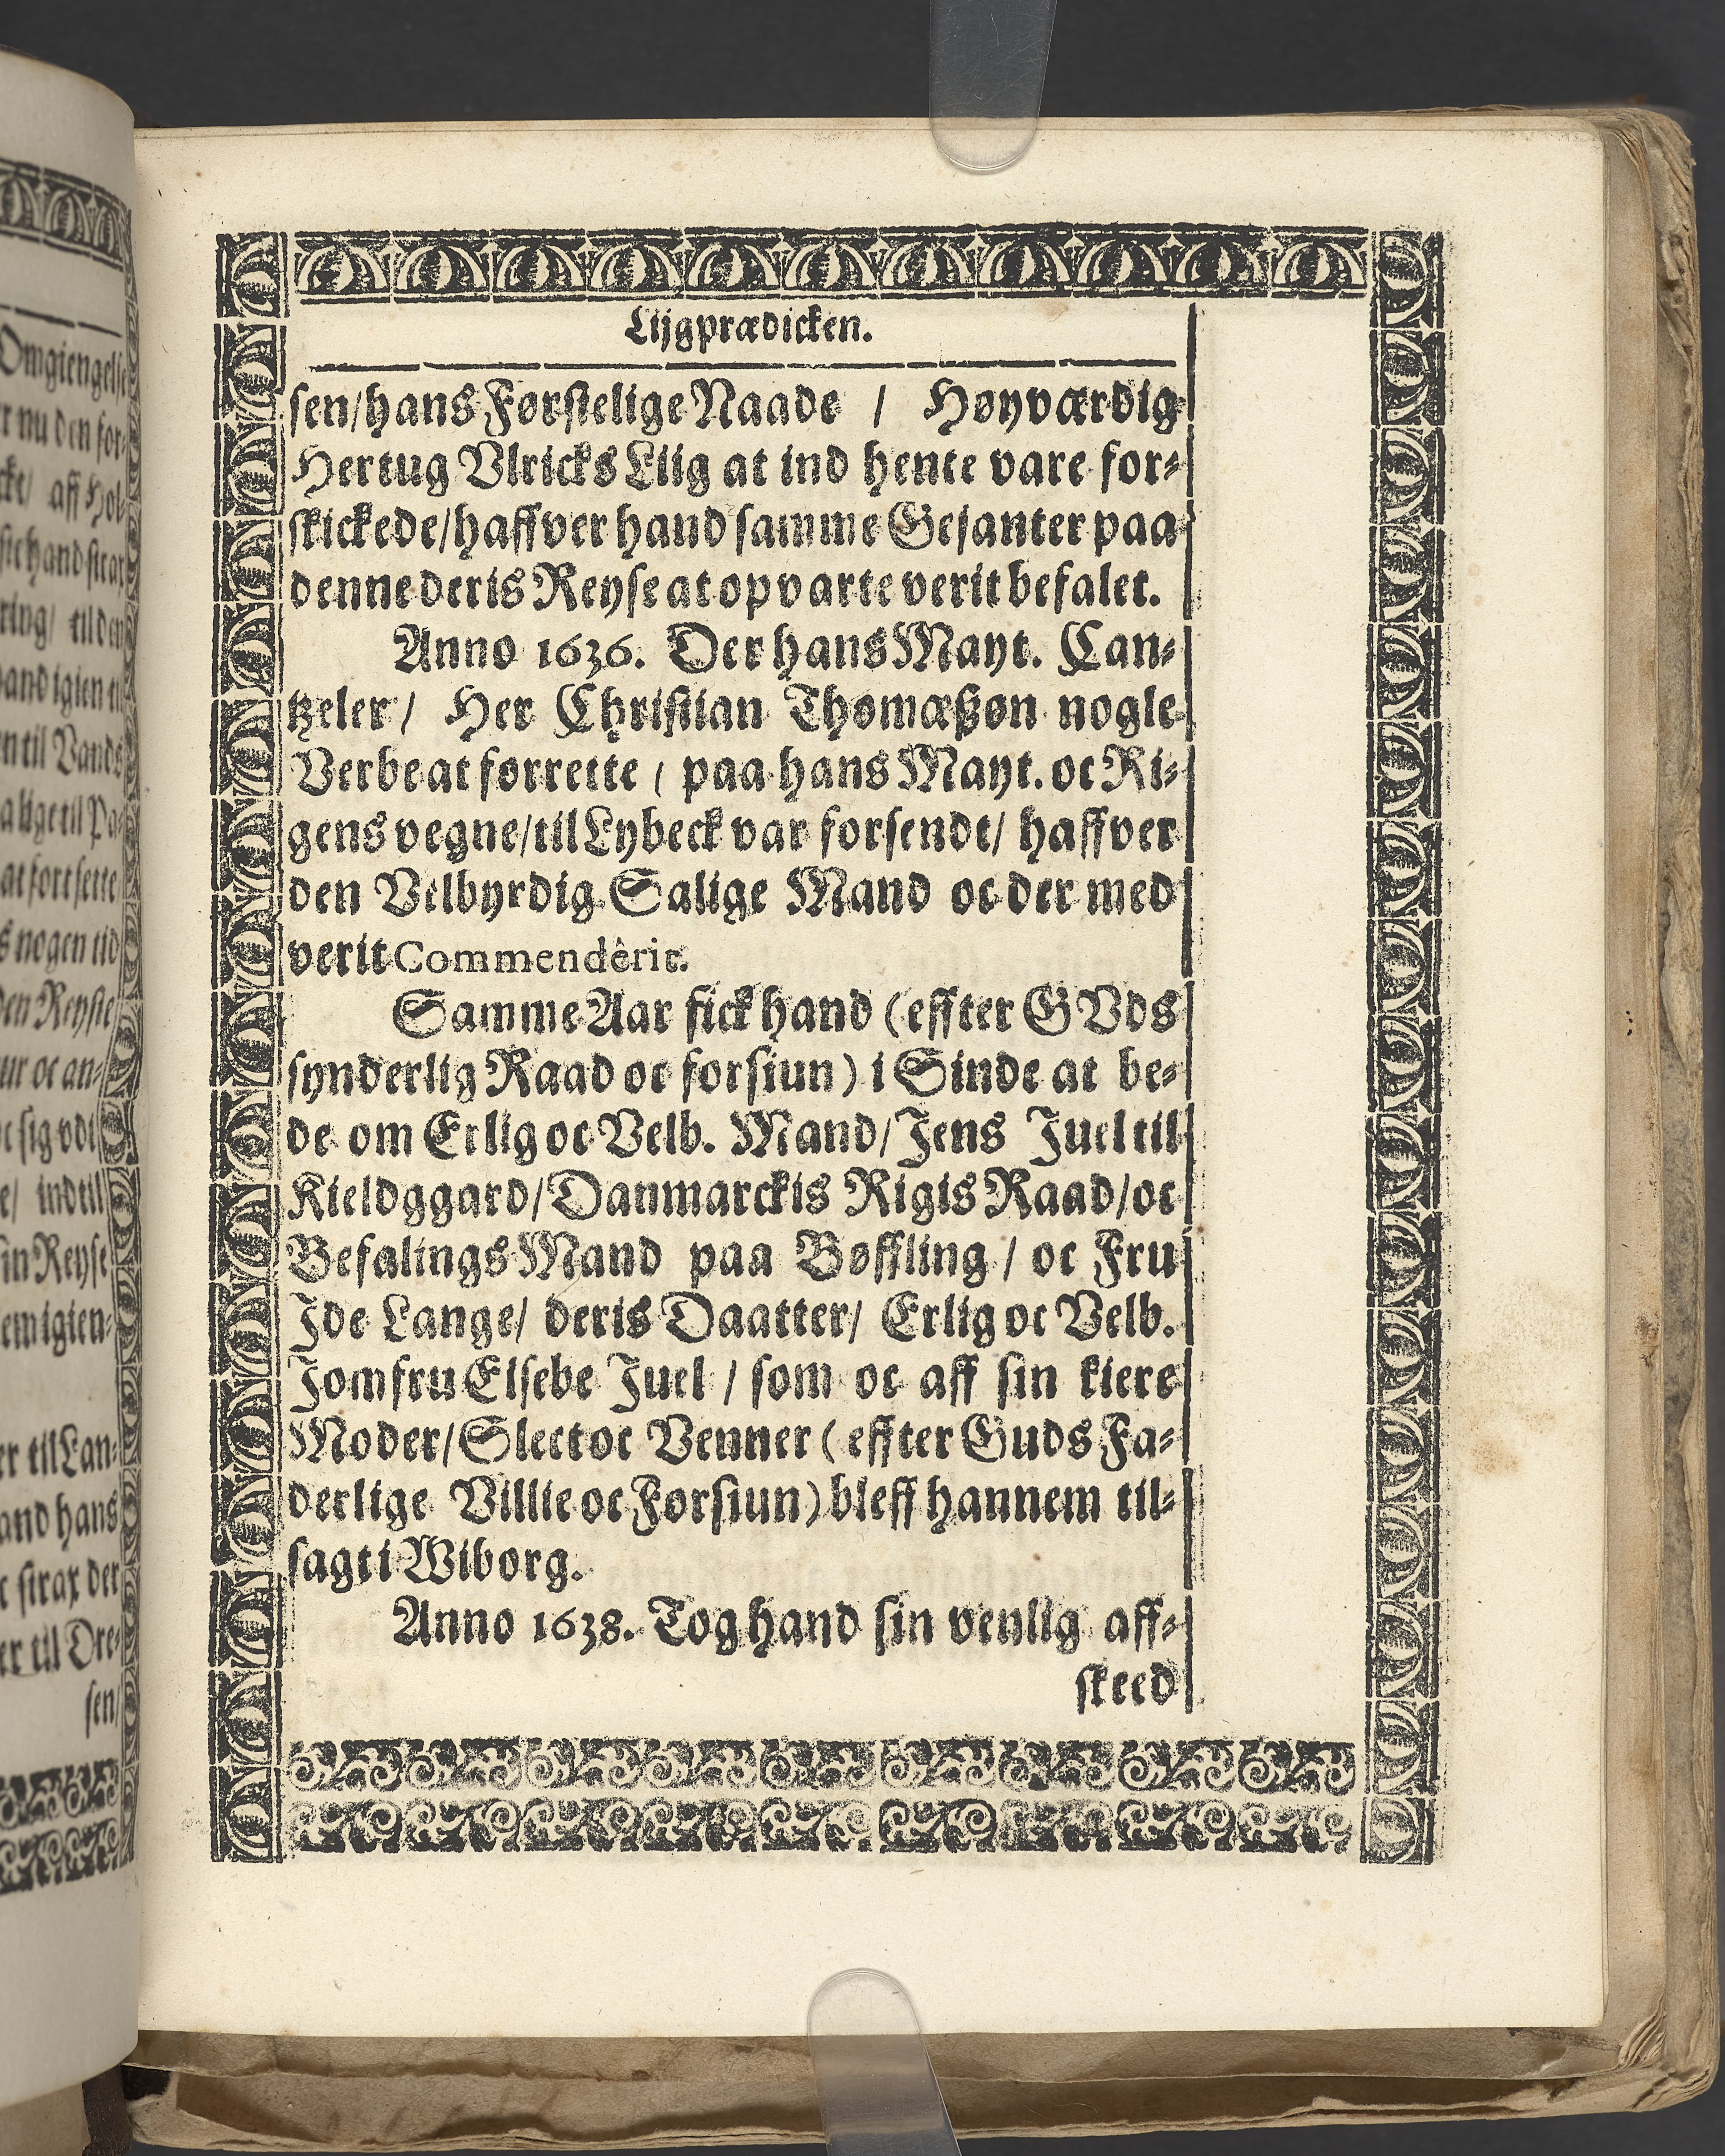 Lijgprædicken.
sen/hans Førstelige Naade / Høyværdig
Hertug Vlricks Liig at ind hente vare for⸗
skickede/haffver hand samme Gesanter paa
denne deris Reyse at opvarte verit befalet.
Anno 1636. Der hans Mayt. Can⸗
tzeler/ Her Christian Thomæßøn nogle
Verbe at forrette / paa hans Mayt. oc Ri⸗
gens vegne/til Lybeck var forsendt/ haffver
den Velbyrdig Salige Mand oc der med
verit Commenderit.
Samme Aar fick hand (effter GVds
synderlig Raad oc forsiun) i Sinde at be⸗
de om Erlig oc Velb. Mand/Jens Juel til
Kieldggard/Danmarckis Rigis Raad/oc
Befalings Mand paa Bøffling / oc Fru
Ide Lange/ deris Daatter/ Erlig oc Velb.
Jomfru Elsebe Juel / som oc aff sin kiere
Moder/Slect oc Venner (effter Guds Fa⸗
derlige Villie oc Forsiun) bleff hannem til⸗
sagt i Wiborg.
Anno 1638. Tog hand sin venlig aff⸗
skeed